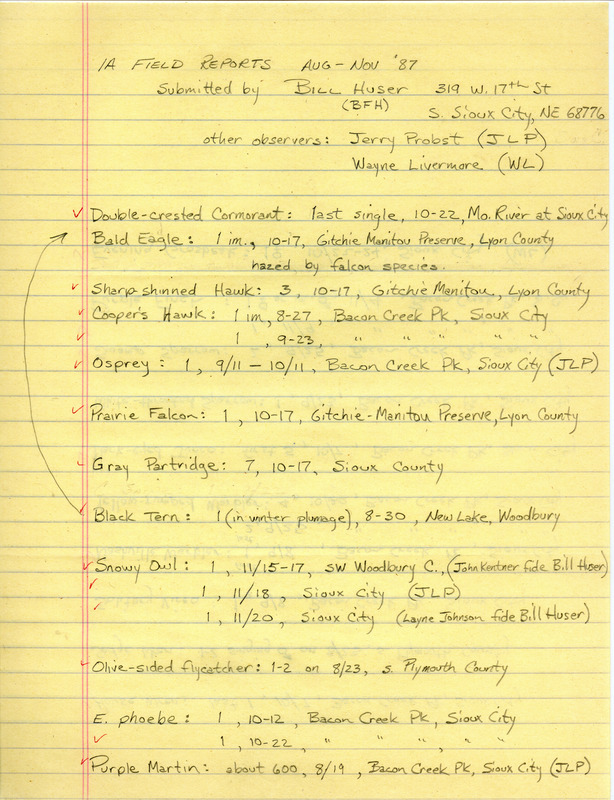 IA FIELD REPORTS AUG-NOV '87
Submitted by BILL HUSER 319 W. 17th St
(BFH) S. Sioux City, NE 68776
other observers: Jerry Probst (JLP)
Wayne Livermore (WL)
Double-crested Cormorant: last single, 10-22, Mo. River at Sioux City
Bald Eagle: 1 im., 10-17, Gitchie Manitou Preserve, Lyon County
hazed by falcon species.
Sharp-shinned Hawk: 3, 10-17, Gitchie Manitou, Lyon County
Cooper's Hawk: 1 im, 8-27, Bacon Creek Pk, Sioux City
1, 9-23, " " " " "
Osprey: 1, 9/11 – 10/11, Bacon Creek Pk, Sioux City (JLP)
Prairie Falcon: 1, 10-17, Gitchie-Manitou Preserve, Lyon County
Gray Partridge: 7, 10-17, Sioux County
Black Tern: 1 (in winter plumage), 8-30, New Lake, Woodbury
Snowy Owl: 1, 11/15-17, SW Woodbury C., (John Kentner fide Bill Huser)
1, 11/18, Sioux City (JLP)
1, 11/20, Sioux City (Layne Johnson fide Bill Huser)
Olive-sided flycatcher: 1-2 on 8/23, S. Plymouth County
E. phoebe: 1, 10-12, Bacon Creek Pk, Sioux City
1, 10-22, " " " " "
Purple Martin: about 600, 8/19, Bacon Creek Pk, Sioux City (JLP)